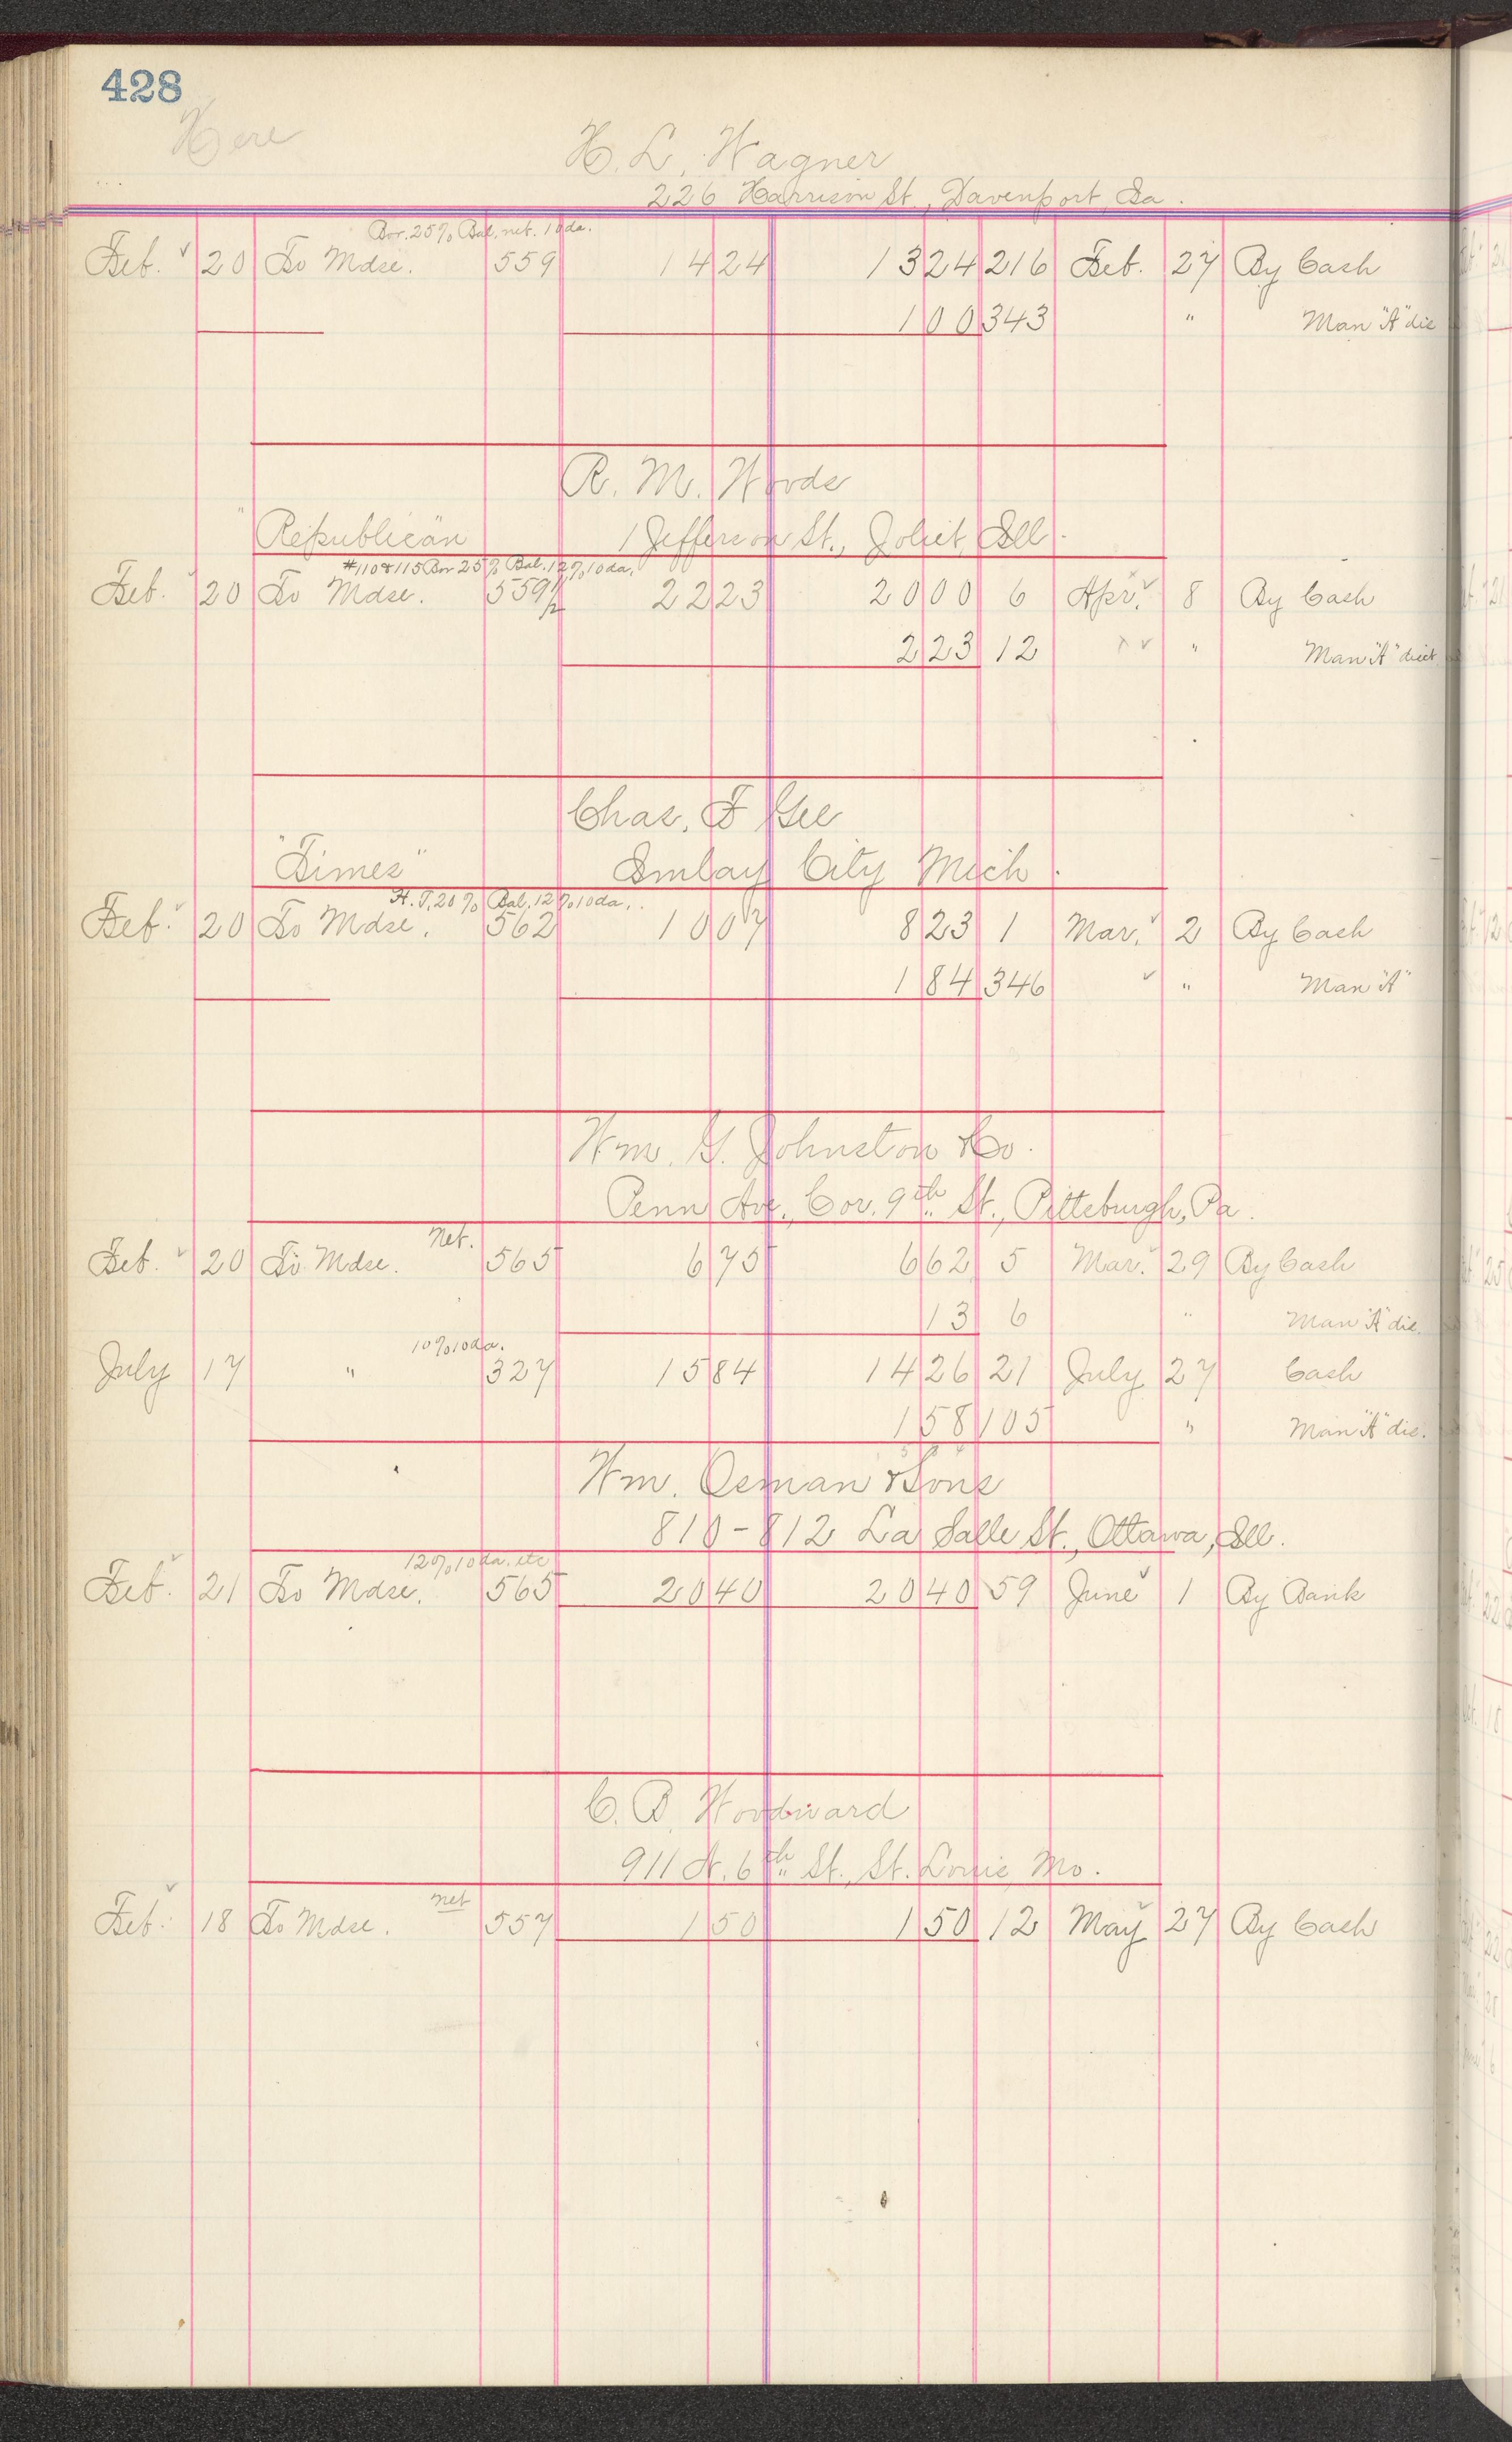 428
Here
H. L. Wagner
226 Harrison St., Davenport, Ia.
Bor. 25% Bal. net. 10 da.
Feb. 20 To Mdse. 559 14 24 13 24 216 Feb. 27 By Cash
1 00 343 " Man "A" dis
R. M. Woods
"Republican" 1 Jefferson St., Joliet, Ill.
#110 & 115 Bor 25% Bal. 12% 10 da.
Feb. 20 To Mdse. 559 1/2 22 23 20 00 6 Apr. 8 By Cash
2 23 12 " Man "A" disct
Chas. F Gee
"Times" Imlay City Mich.
H. T. 20% Bal. 12% 10 da.
Feb. 20 To Mdse. 562 10 07 8 23 1 Mar. 2 By Cash
1 84 346 " Man "A"
Wm. G. Johnston & Co.
Penn Ave., Cor. 9th St., Pittsburgh, Pa.
Net.
Feb. 20 To Mdse. 565 6 75 6 62 5 Mar. 29 By Cash
13 6 " Man "A" dis.
10% 10 da.
July 17 " 327 15 84 14 26 21 July 27 Cash
1 58 105 " Man "A" dis.
Wm. Osman & Sons
810-812 La Salle St., Ottawa, Ill.
12% 10 da. etc
Feb. 21 To Mdse. 565 20 40 20 40 59 June 1 By Bank
C. B. Woodward
911 N. 6th St., St. Louis, Mo.
net
Feb. 18 To Mdse. 557 1 50 1 50 12 May 27 By Cash